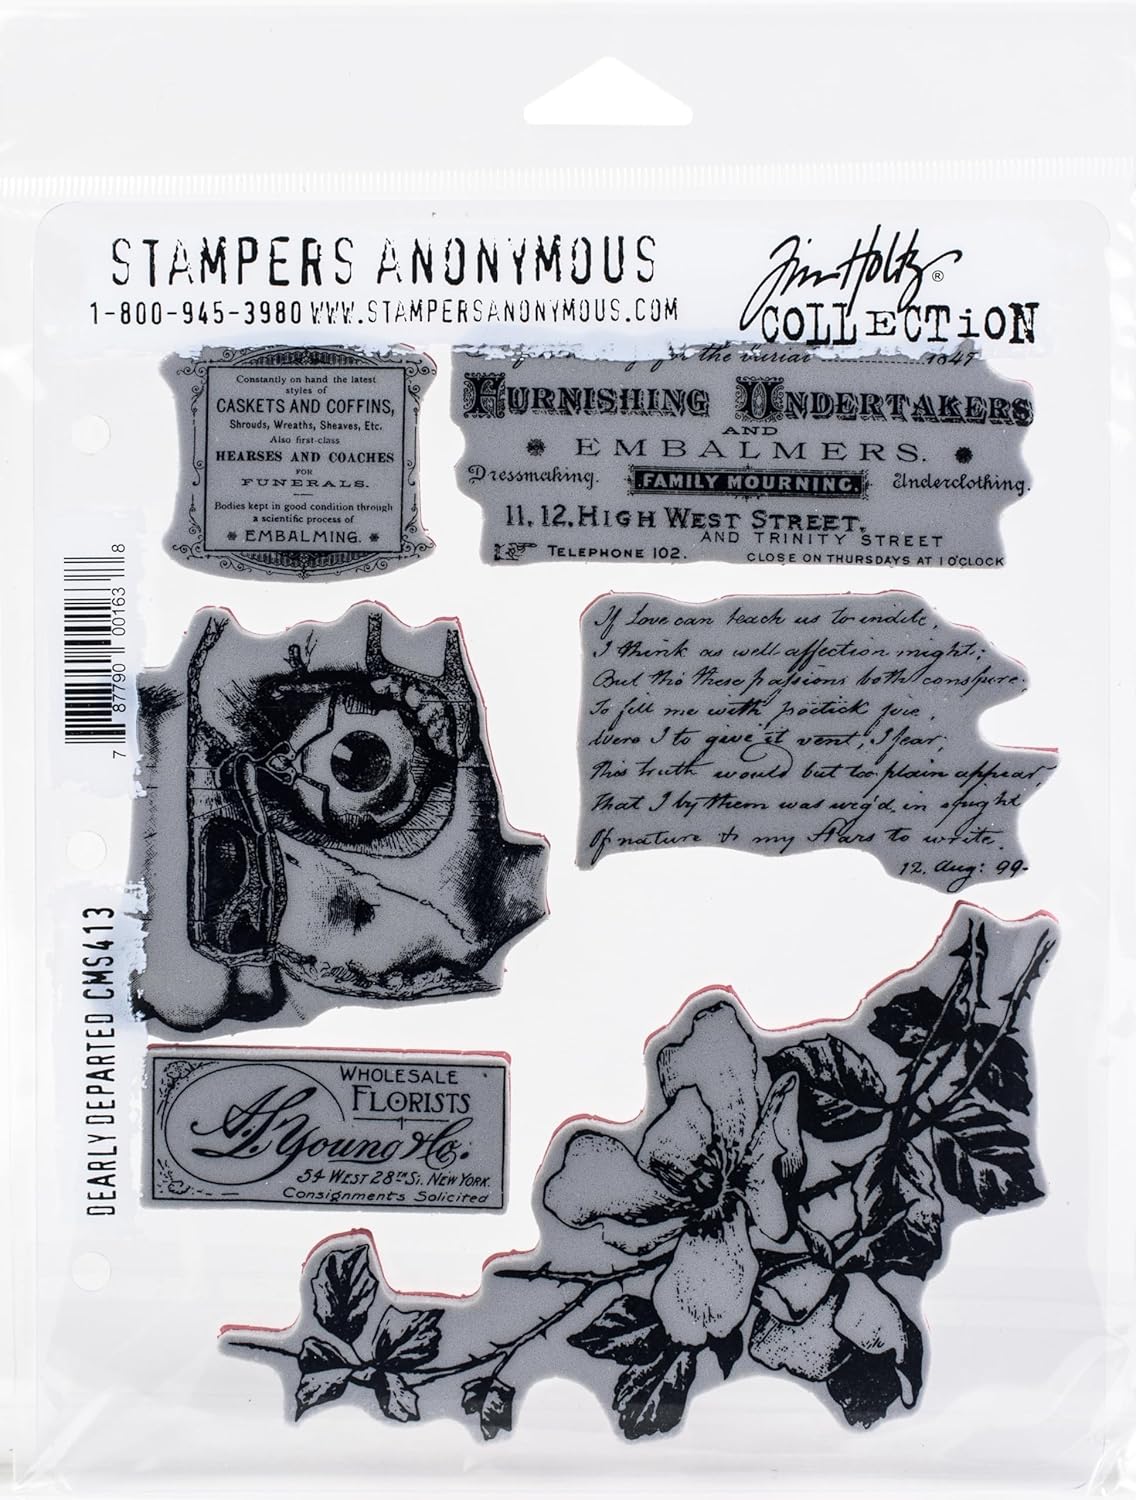 STAMPERS ANONYMOUS
1-800-945-3980 WWW.STAMPERSANONYMOUS.COM
Tim Holtz®
COLLECTION
Constantly on hand the latest
styles of
CASKETS AND COFFINS,
Shrouds, Wreaths, Sheaves, Etc.
Also first-class
HEARSES AND COACHES
FOR
FUNERALS.
Bodies kept in good condition through
a scientific process of
EMBALMING.
the burial 1847
FURNISHING UNDERTAKERS
AND
EMBALMERS.
Dressmaking. FAMILY MOURNING. Underclothing.
11, 12, HIGH WEST STREET,
AND TRINITY STREET
TELEPHONE 102.
CLOSE ON THURSDAYS AT 1 O'CLOCK
If Love can teach us to indite,
I think as well affection might;
But tho these passions both conspire
To fill me with poetick fire,
Were I to give it vent, I fear,
This truth would but too plain appear
That I by them was urg'd in spight
Of nature & my Stars to write.
12. Aug: 99-
7 87790 00163 8
DEARLY DEPARTED CMS413
WHOLESALE
FLORISTS
A.L. Young & Co.
54 WEST 28TH ST. NEW YORK.
Consignments Solicited